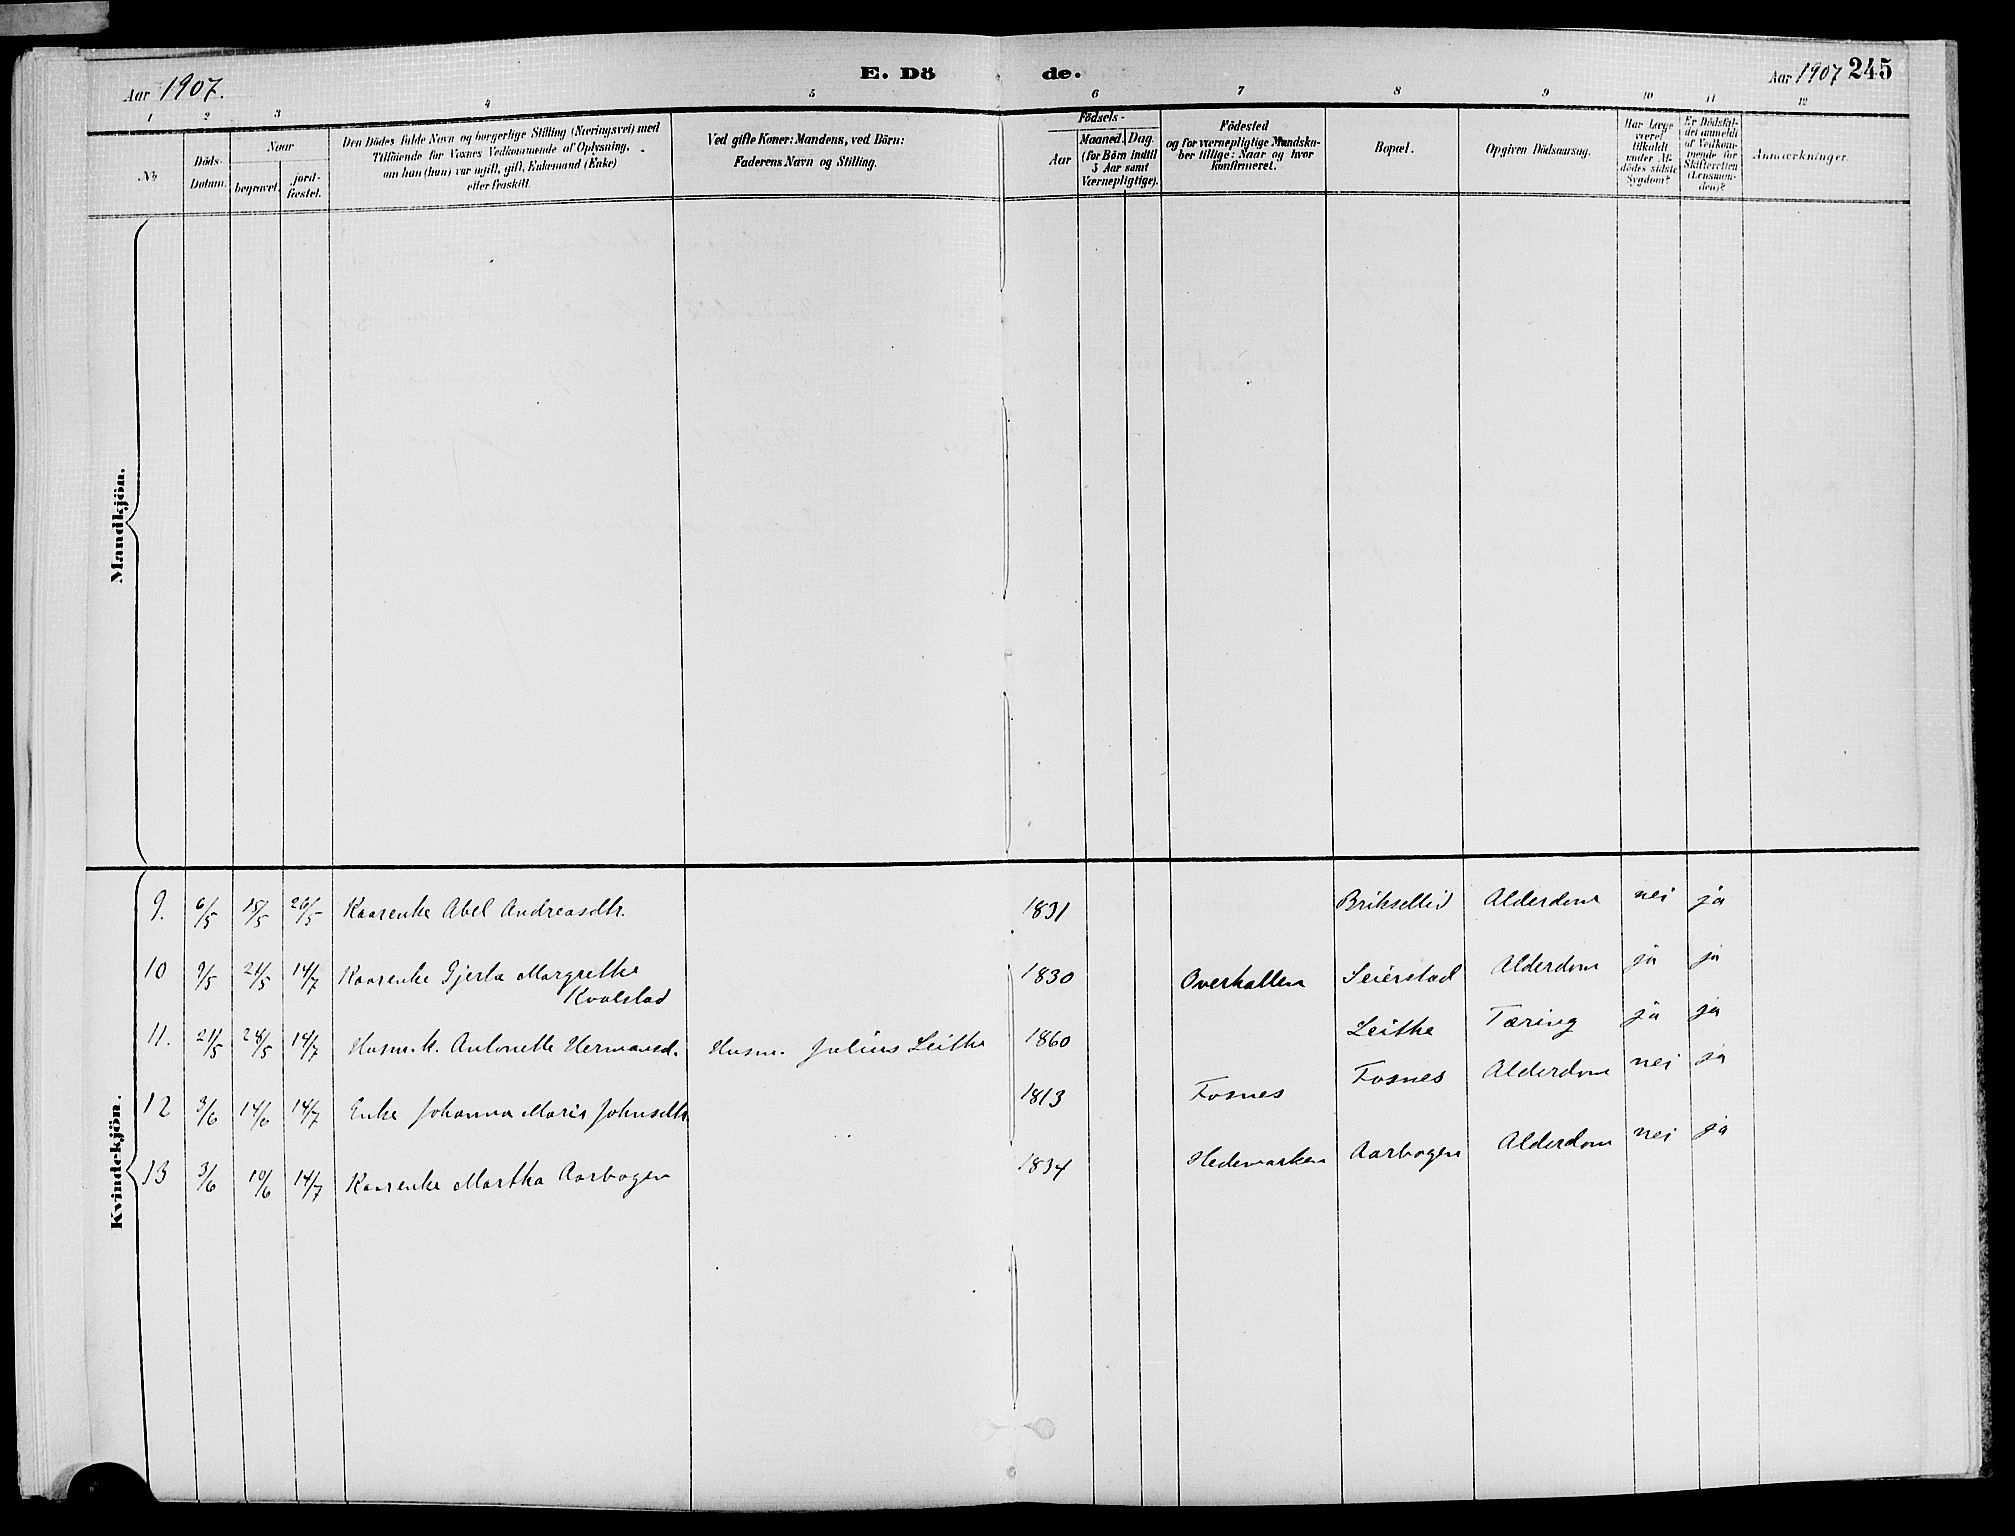 Aar 1907.
E. Dö de.
Aar 1907 245
1 2 3 4 5 6 7 8 9 10 11 12
No
Döds-Datum.
Naar
begravet.
jord-fæstet.
Den Dödes fulde Navn og borgerlige Stilling (Næringsvei) med
Tilföiende for Voxnes Vedkommende af Oplysning,
om han (hun) var ugift, gift, Enkemand (Enke)
eller fraskilt.
Ved gifte Koner: Mandens, ved Börn:
Faderens Navn og Stilling.
Födsels-
Aar
Maaned. Dag.
(for Börn indtil
5 Aar samt
Værnepligtige).
Födested
og for værnepligtige Mandska-
ber tillige: Naar og hvor
konfirmeret.
Bopæl.
Opgiven Dödsaarsag.
Har Læge
været
tilkaldt
under Af-
dödes sidste
Sygdom?
Er Dödsfal-
det anmeldt
af Vedkom-
mende for
Skifteretten
(Lensman-
den)?
Anmærkninger.
Mandkjön.
Kvindekjön.
9. 6/5 15/5 26/5 Kaarenke Abel Andreasdtr. 1831 Alderdom nei ja
10 9/5 24/5 14/7 Kaarenke Gjerta Margrethe 1830 Overhallen Seierstad Alderdom ja ja
Kvalstad
11. 21/5 28/5 14/7 Husm.k. Antonette Hermansd. Husm. Julius Leithe 1860 Leithe Tæring ja ja
12 3/6 14/6 14/7 Enke Johanna Maria Johnsdtr 1813 Fosnes Fosnes Alderdom nei ja
13 3/6 10/6 14/7 Kaarenke Martha Aarbogen 1834 Hedemarken Aarbogen Alderdom nei ja